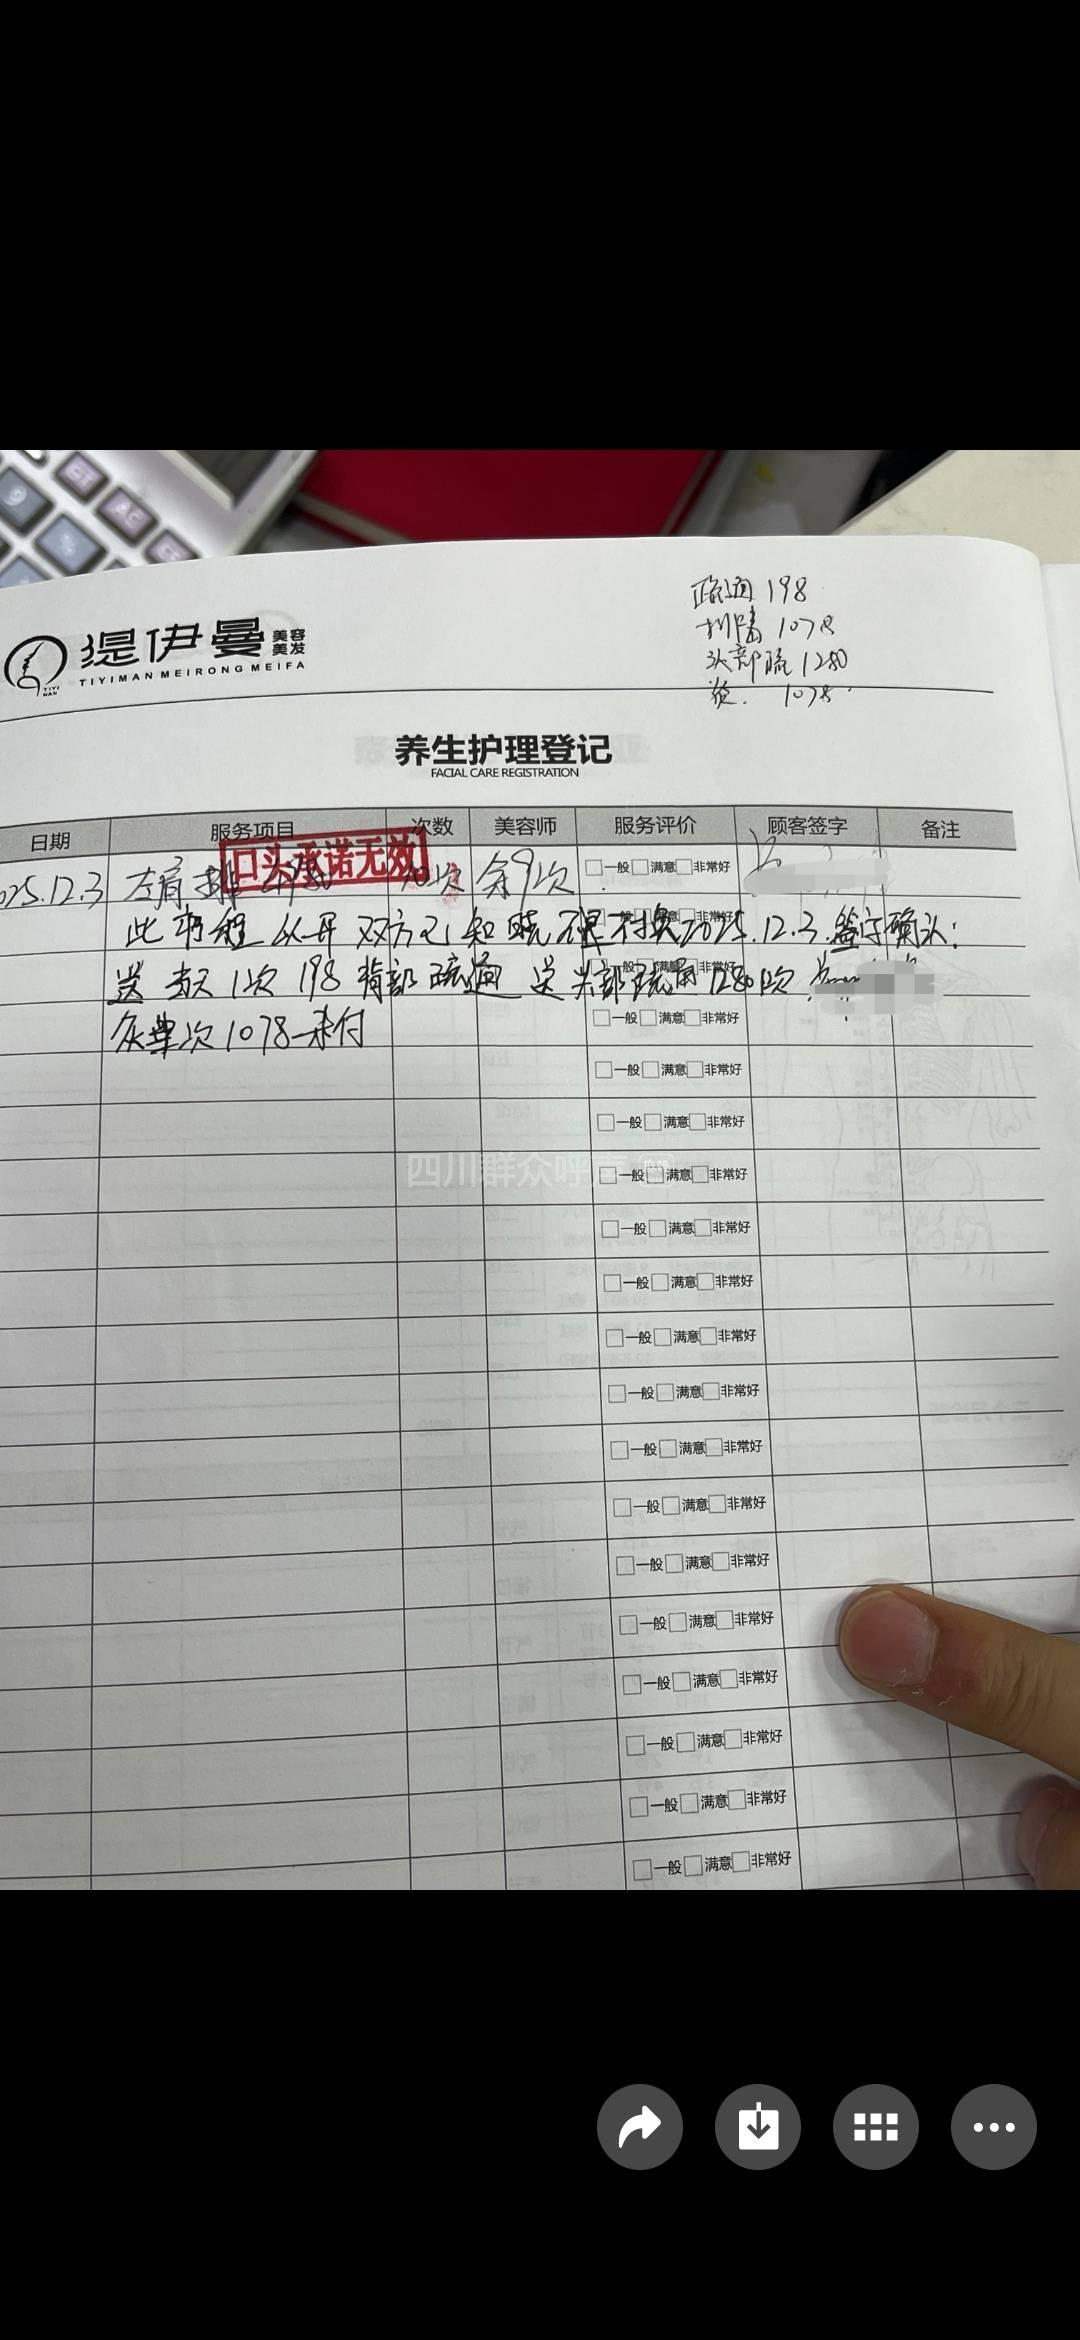 疏通 198
排毒 1078
头部疏 1280
灸. 1078
缇伊曼 美容美发
TIYIMAN MEIRONG MEIFA
TIYI MAN
养生护理登记
FACIAL CARE REGISTRATION
日期 服务项目 次数 美容师 服务评价 顾客签字 备注
口头承诺无效
25.12.3 左肩排 10次 余9次 一般 满意 非常好
此疗程 双方已知晓 不退不换2025.12.3.签字确认:
一般 满意 非常好
送 1次 198 背部疏通 送头部疏通1280 1次
一般 满意 非常好
灸单次1078未付 一般 满意 非常好
一般 满意 非常好
一般 满意 非常好
四川群众呼声
一般 满意 非常好
一般 满意 非常好
一般 满意 非常好
一般 满意 非常好
一般 满意 非常好
一般 满意 非常好
一般 满意 非常好
一般 满意 非常好
一般 满意 非常好
一般 满意 非常好
一般 满意 非常好
一般 满意 非常好
一般 满意 非常好